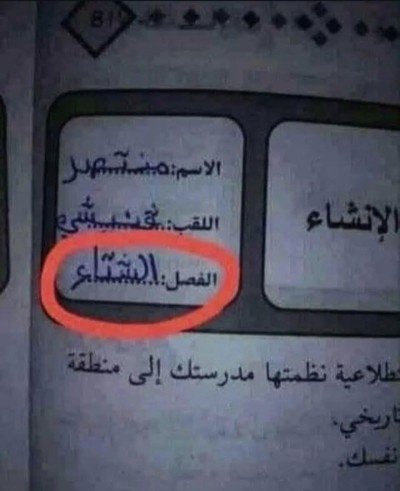 81
الاسم: منتصر
اللقب:
الفصل: الشتاء
الإنشاء
تطلاعية نظمتها مدرستك إلى منطقة
تاريخي.
نفسك.